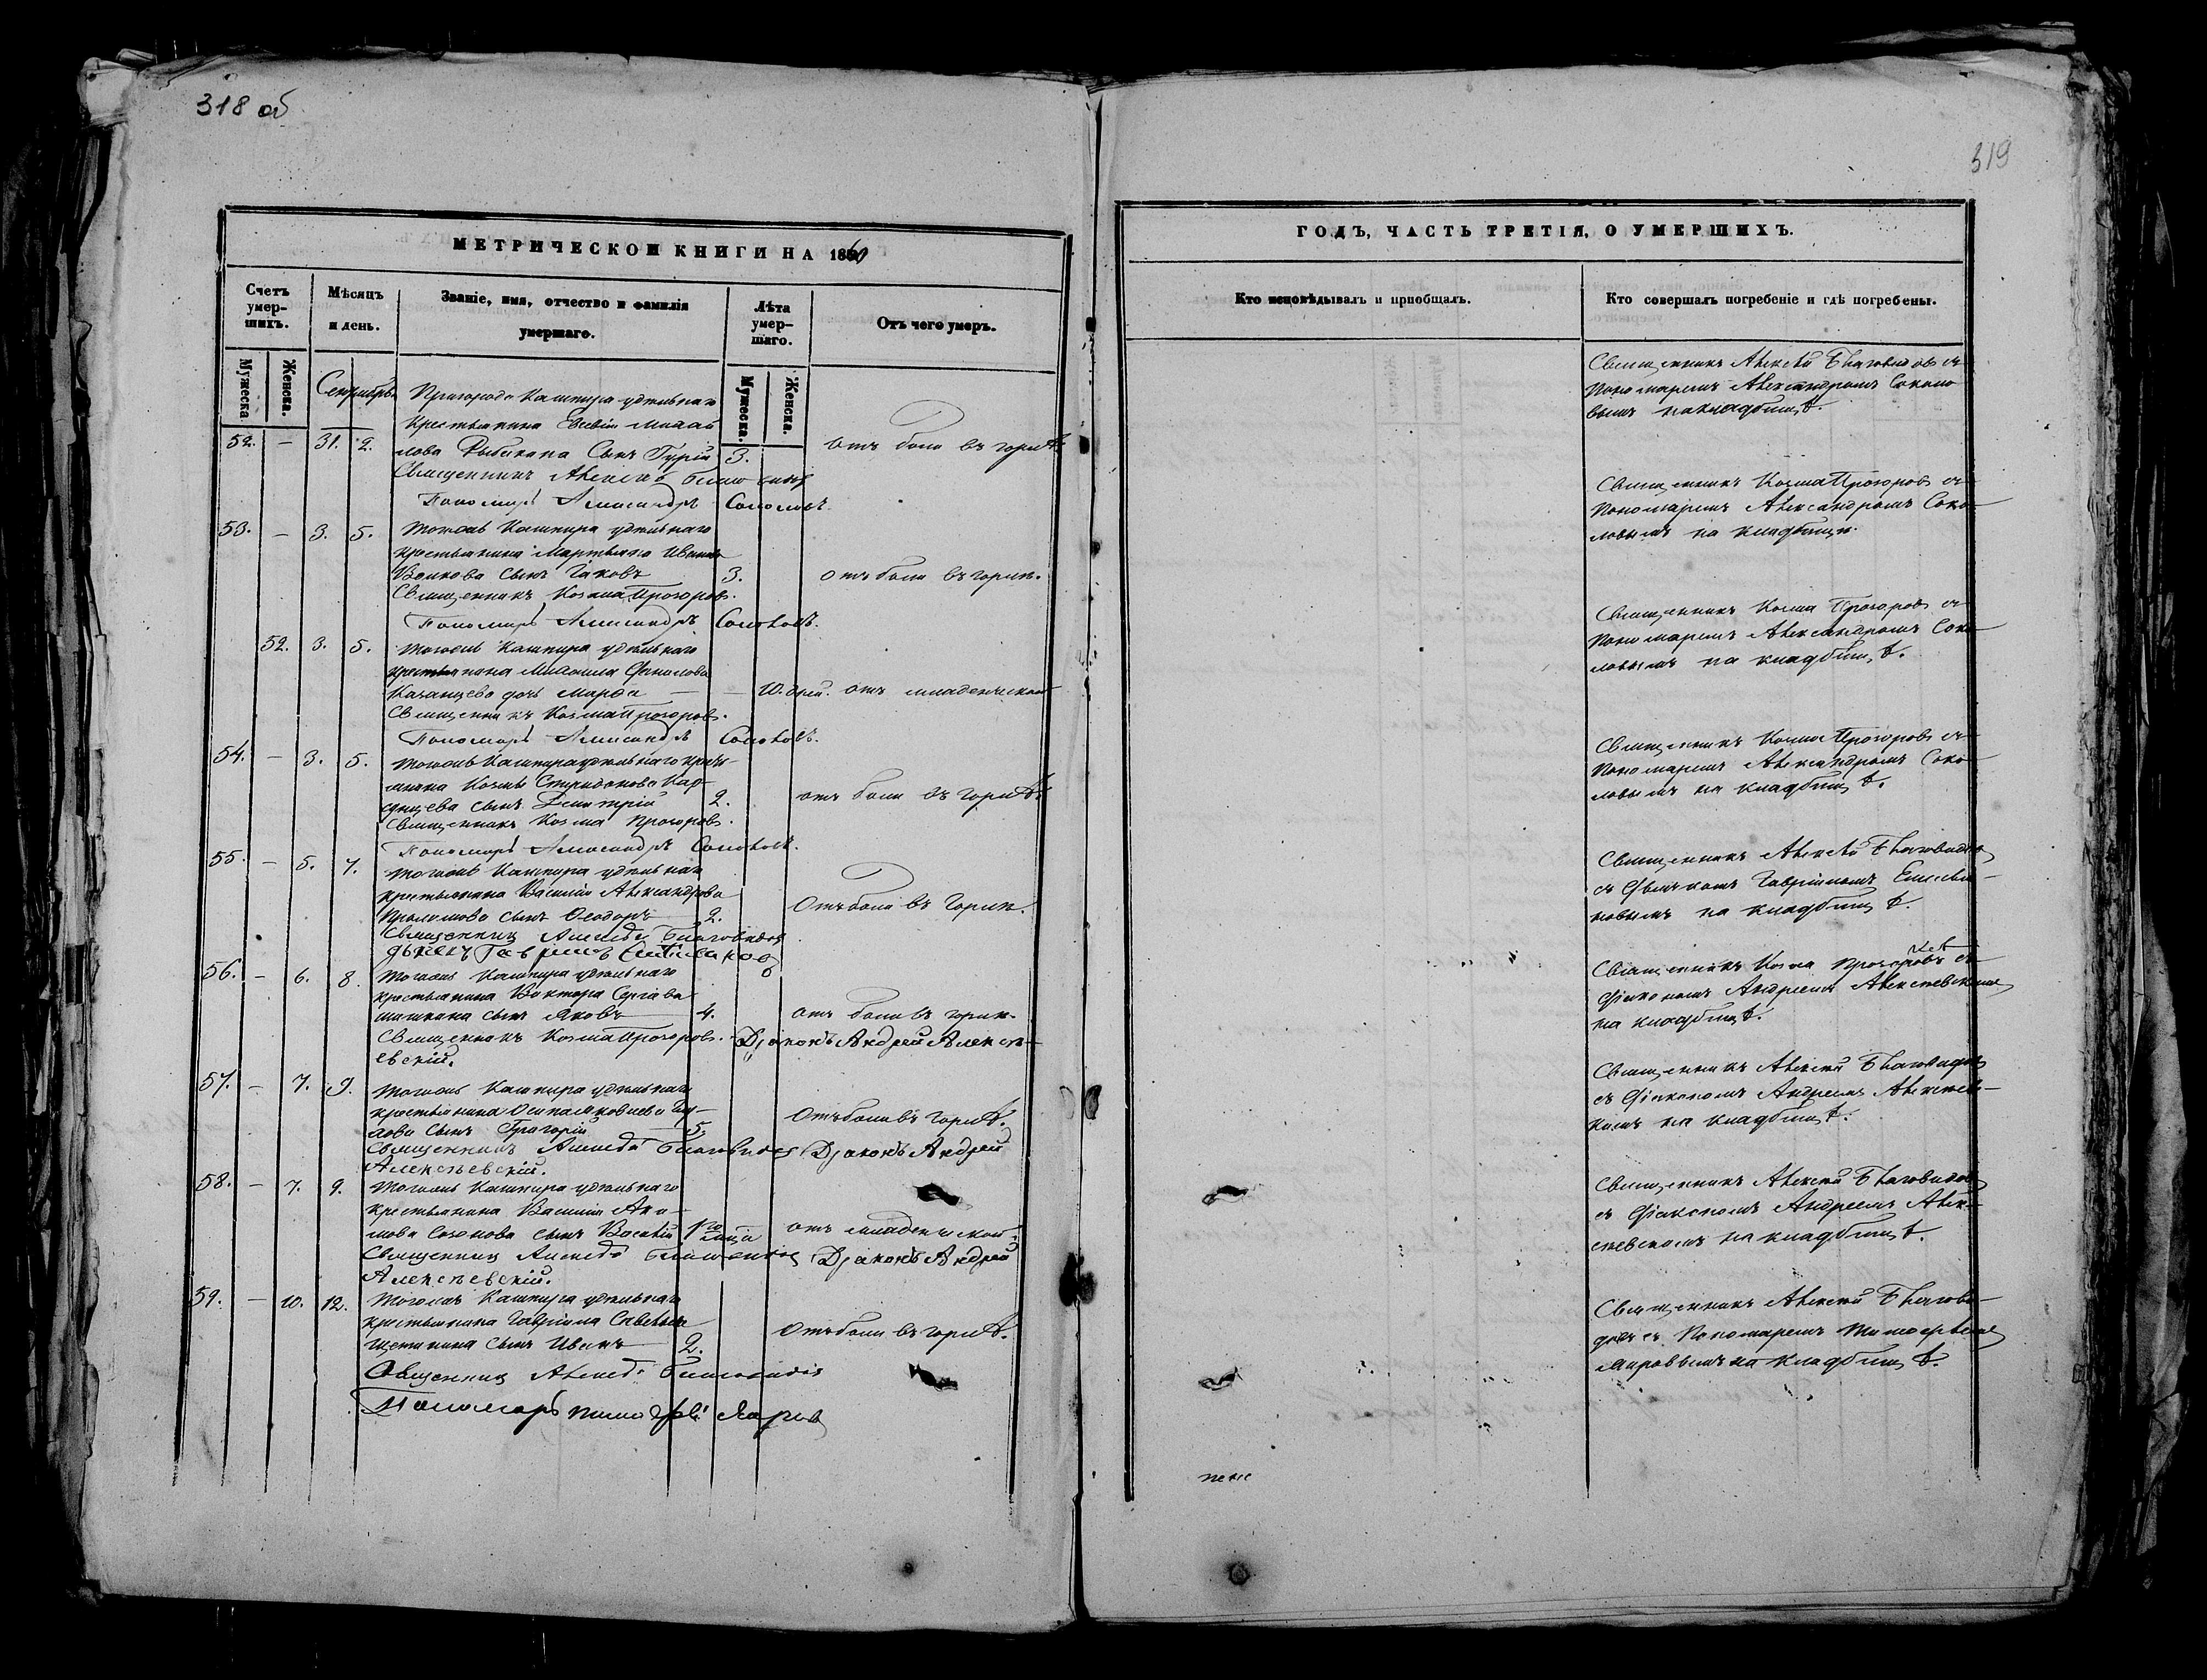 318 об
МЕТРИЧЕСКОЙ КНИГИ НА 1860
Счетъ умер-шихъ.
Мѣсяцъ и день.
Званіе, имя, отчество и фамилія умершаго.
Лѣта умер-шаго.
Отъ чего умеръ.
Мужеска.
Женска.
Мужеска.
Женска.
Сентябрь
Пригорода Кашпира удѣльнаго
крестьянина Евсевія Михай
52. — 31. 2. лова Рыбакина Сынъ Гурій 3. отъ боли въ горлѣ
Священникъ Алексѣй Благовидовъ
Пономарь Александръ Соколовъ.
53. — 3. 5. тогожъ Кашпира удѣльнаго
крестьянина Мартьяна Иванова
Волкова сынъ Іаковъ 3. отъ боли въ горлѣ.
Священникъ Козма Прозоровъ.
Пономарь Александръ Соколовъ.
52. 3. 5. тогожъ Кашпира удѣльнаго
крестьянина Михаила
Казанцева дочь Марфа — — 10. дней. отъ младенческой
Священникъ Козма Прозоровъ.
Пономарь Александръ Соколовъ.
54. — 3. 5. тогожъ Кашпира удѣльнаго кресть-
янина Козмы Спиридонова
сынъ Димитрій 2. отъ боли въ горлѣ.
Священникъ Козма Прозоровъ.
Пономарь Александръ Соколовъ.
55. — 5. 7. тогожъ Кашпира удѣльнаго
крестьянина Василія Александрова
сынъ Ѳеодоръ 2. Отъ боли въ горлѣ.
Священникъ Алексѣй Благовидовъ
дьячекъ Гавріилъ
56. — 6. 8. тогожъ Кашпира удѣльнаго
крестьянина Виктора Сергѣева
Шишкина сынъ Яковъ 4. отъ боли въ горлѣ.
Священникъ Козма Прозоровъ. Діаконъ Андрей Алексѣ-
евскій.
57. — 7. 9. тогожъ Кашпира удѣльнаго
крестьянина Осипа Яковлева
сынъ Григорій 5. Отъ боли въ горлѣ.
Священникъ Алексѣй Благовидовъ Діаконъ Андрей
Алексѣевскій.
58. — 7. 9. тогожъ Кашпира удѣльнаго
крестьянина Василія Аки-
мова сынъ Василій отъ младенческой.
Священникъ Алексѣй Благовидовъ Діаконъ Андрей
Алексѣевскій.
59. — 10. 12. тогожъ Кашпира удѣльнаго
крестьянина Гавріила Савельева
Щетинина сынъ Иванъ 2. Отъ боли въ горлѣ.
Священникъ Алексѣй Благовидовъ
Пономарь Тимофей Лавровъ
319
ГОДЪ, ЧАСТЬ ТРЕТІЯ, О УМЕРШИХЪ.
Кто исповѣдывалъ и пріобщалъ.
Кто совершалъ погребеніе и гдѣ погребены.
Священникъ Алексѣй Благовидовъ съ
Пономаремъ Александромъ Соколо
вымъ на кладбищѣ.
Священникъ Козма Прозоровъ съ
Пономаремъ Александромъ Соко-
ловымъ на кладбищѣ.
Священникъ Козма Прозоровъ съ
Пономаремъ Александромъ Соко-
ловымъ на кладбищѣ.
Священникъ Козма Прозоровъ съ
Пономаремъ Александромъ Соко-
ловымъ на кладбищѣ.
Священникъ Алексѣй Благовидовъ
съ дьячкомъ Гавріиломъ
на кладбищѣ.
Священникъ Козма Прозоровъ съ
Діакономъ Андреемъ Алексѣевскимъ
на кладбищѣ.
Священникъ Алексѣй Благовидовъ
съ Діакономъ Андреемъ Алексѣев-
кимъ на кладбищѣ.
Священникъ Алексѣй Благовидовъ
съ Діакономъ Андреемъ Алек-
сѣевскимъ на кладбищѣ.
Священникъ Алексѣй Благови-
довъ съ Пономаремъ Тимофеемъ
Лавровымъ на кладбищѣ.